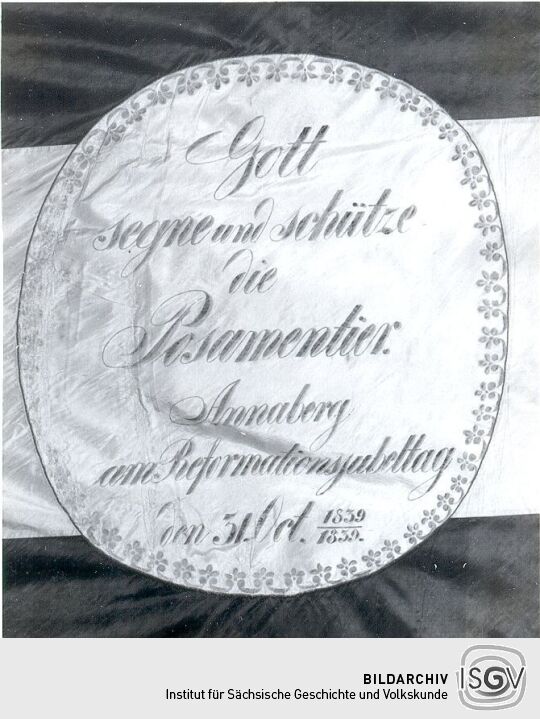 Gott
segne und schütze
die
Posamentier.
Annaberg
am Reformationsjubeltag
den 31. Oct. 1839/1839.
BILDARCHIV
Institut für Sächsische Geschichte und Volkskunde
ISGV